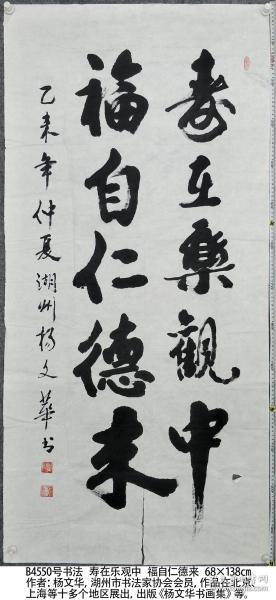 寿在樂觀中
福自仁德来
乙未年仲夏湖州杨文華书
B4550号书法 寿在乐观中 福自仁德来 68×138cm
作者: 杨文华, 湖州市书法家协会会员, 作品在北京、
上海等十多个地区展出, 出版《杨文华书画集》等。